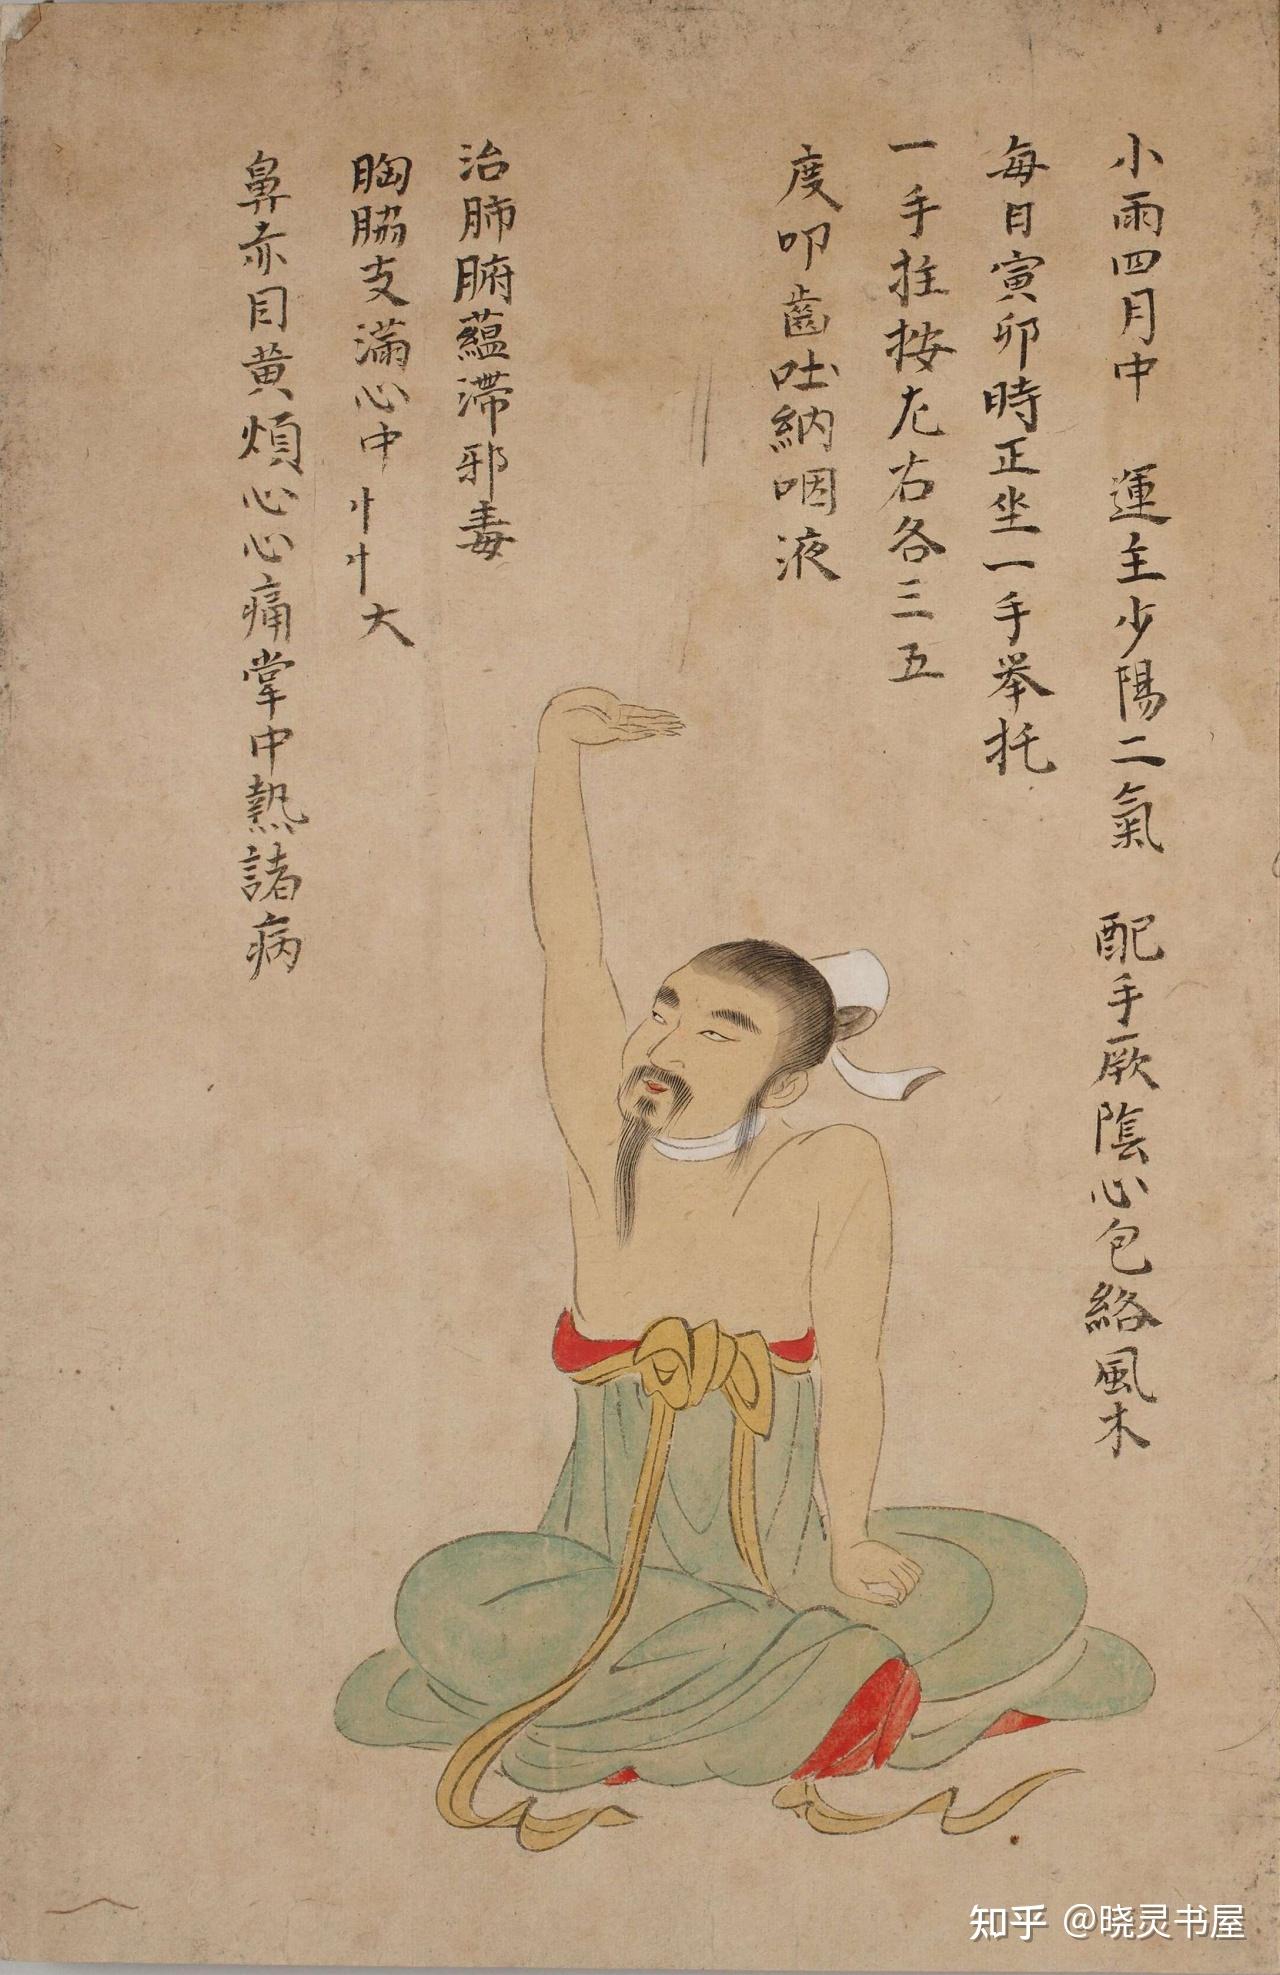 小雨四月中　運主少陽二氣　配手厥陰心包絡風木
每日寅卯時正坐一手举托
一手拄按尢右各三五
度叩齒吐納咽液
治肺腑蘊滯邪毒
胸脇支滿心中大
鼻赤目黄煩心心痛掌中熱諸病
知乎 @晓灵书屋